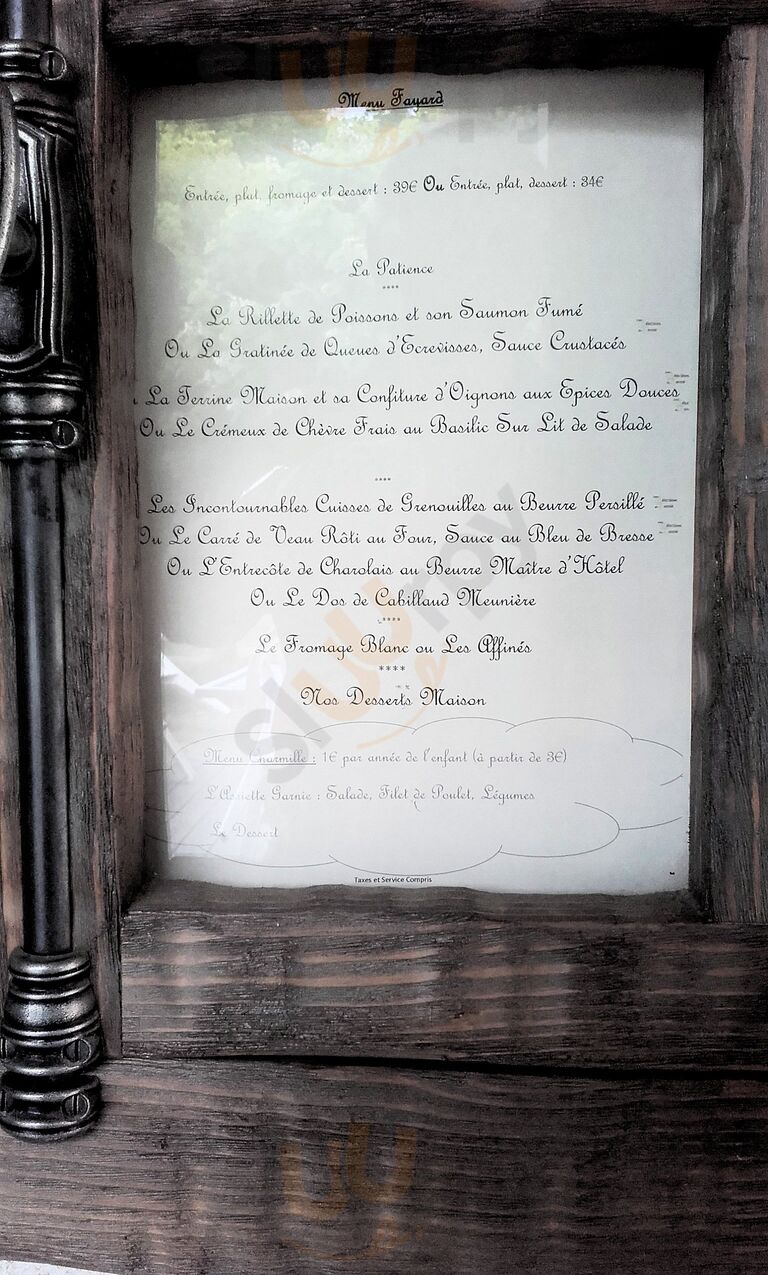 Menu Fayard
Entrée, plat, fromage et dessert : 39€ Ou Entrée, plat, dessert : 34€
La Patience
****
La Rillette de Poissons et son Saumon Fumé
Ou La Gratinée de Queues d'Ecrevisses, Sauce Crustacés
La Terrine Maison et sa Confiture d'Oignons aux Epices Douces
Ou Le Crémeux de Chèvre Frais au Basilic Sur Lit de Salade
****
Les Incontournables Cuisses de Grenouilles au Beurre Persillé
Ou Le Carré de Veau Rôti au Four, Sauce au Bleu de Bresse
Ou L'Entrecôte de Charolais au Beurre Maître d'Hôtel
Ou Le Dos de Cabillaud Meunière
****
Le Fromage Blanc ou Les Affinés
****
Nos Desserts Maison
Menu Charmille : 1€ par année de l'enfant (à partir de 3€)
L'Assiette Garnie : Salade, Filet de Poulet, Légumes
Le Dessert
Taxes et Service Compris
sluurpy